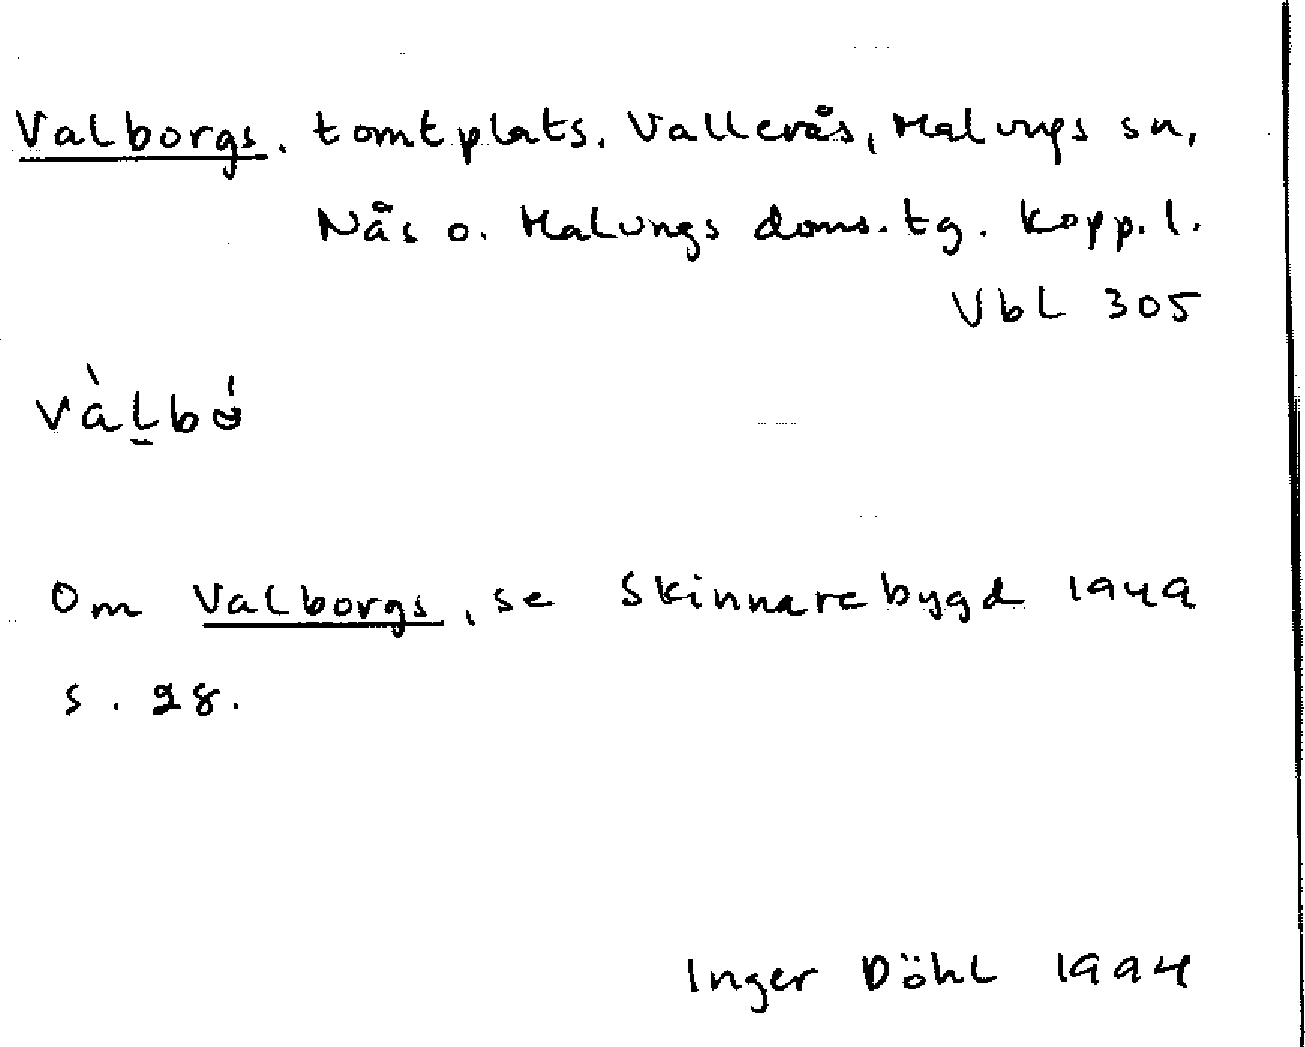 Valborgs, tomtplats, Vallerås, Malungs sn,
Nås o. Malungs doms.tg. Kopp.l.
VbL 305
và̀ḻbǿ
Om Valborgs, se Skinnarebygd 1949
s. 28.
Inger Döhl 1994